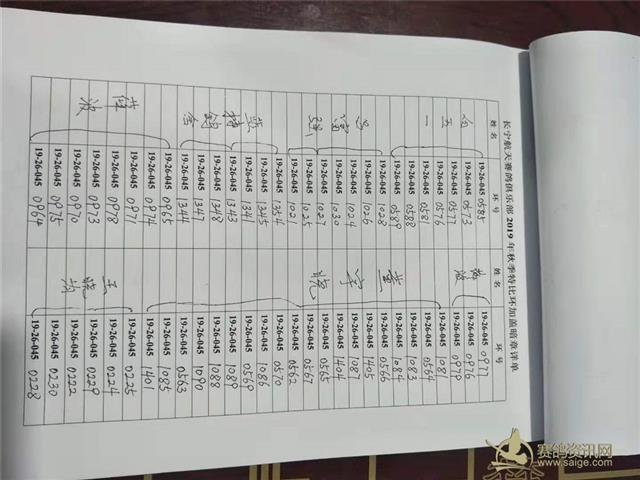 长宁航天赛鸽俱乐部 2019 年秋季特比环加盖暗章详单
姓名 环号 姓名 环号
19-26-045 0585 19-26-045 0977
19-26-045 0573 薛 19-26-045 0976
五 19-26-045 0577 波 19-26-045 0979
19-26-045 0576 19-26-045 1081
一 19-26-045 0581 19-26-045 0564
19-26-045 0588 19-26-045 1083
19-26-045 0589 19-26-045 1084
19-26-045 1028 董 19-26-045 0566
19-26-045 1026 19-26-045 1405
19-26-045 1024 宇 19-26-045 1087
19-26-045 1030 19-26-045 1404
19-26-045 1027 19-26-045 0565
强 19-26-045 1025 19-26-045 0567
19-26-045 1021 19-26-045 0562
19-26-045 1354 19-26-045 0570
19-26-045 1345 19-26-045 1086
19-26-045 1341 19-26-045 0569
19-26-045 1343 19-26-045 1089
19-26-045 1348 19-26-045 1088
19-26-045 1347 19-26-045 1090
舍 19-26-045 1344 19-26-045 0563
19-26-045 0965 19-26-045 1085
19-26-045 0974 19-26-045 1401
19-26-045 0971 王 19-26-045 0225
薛 19-26-045 0978 19-26-045 0224
19-26-045 0973 晓 19-26-045 0229
波 19-26-045 0970 均 19-26-045 0222
19-26-045 0975 19-26-045 0230
19-26-045 0964 19-26-045 0228
赛鸽资讯网
www.saige.com